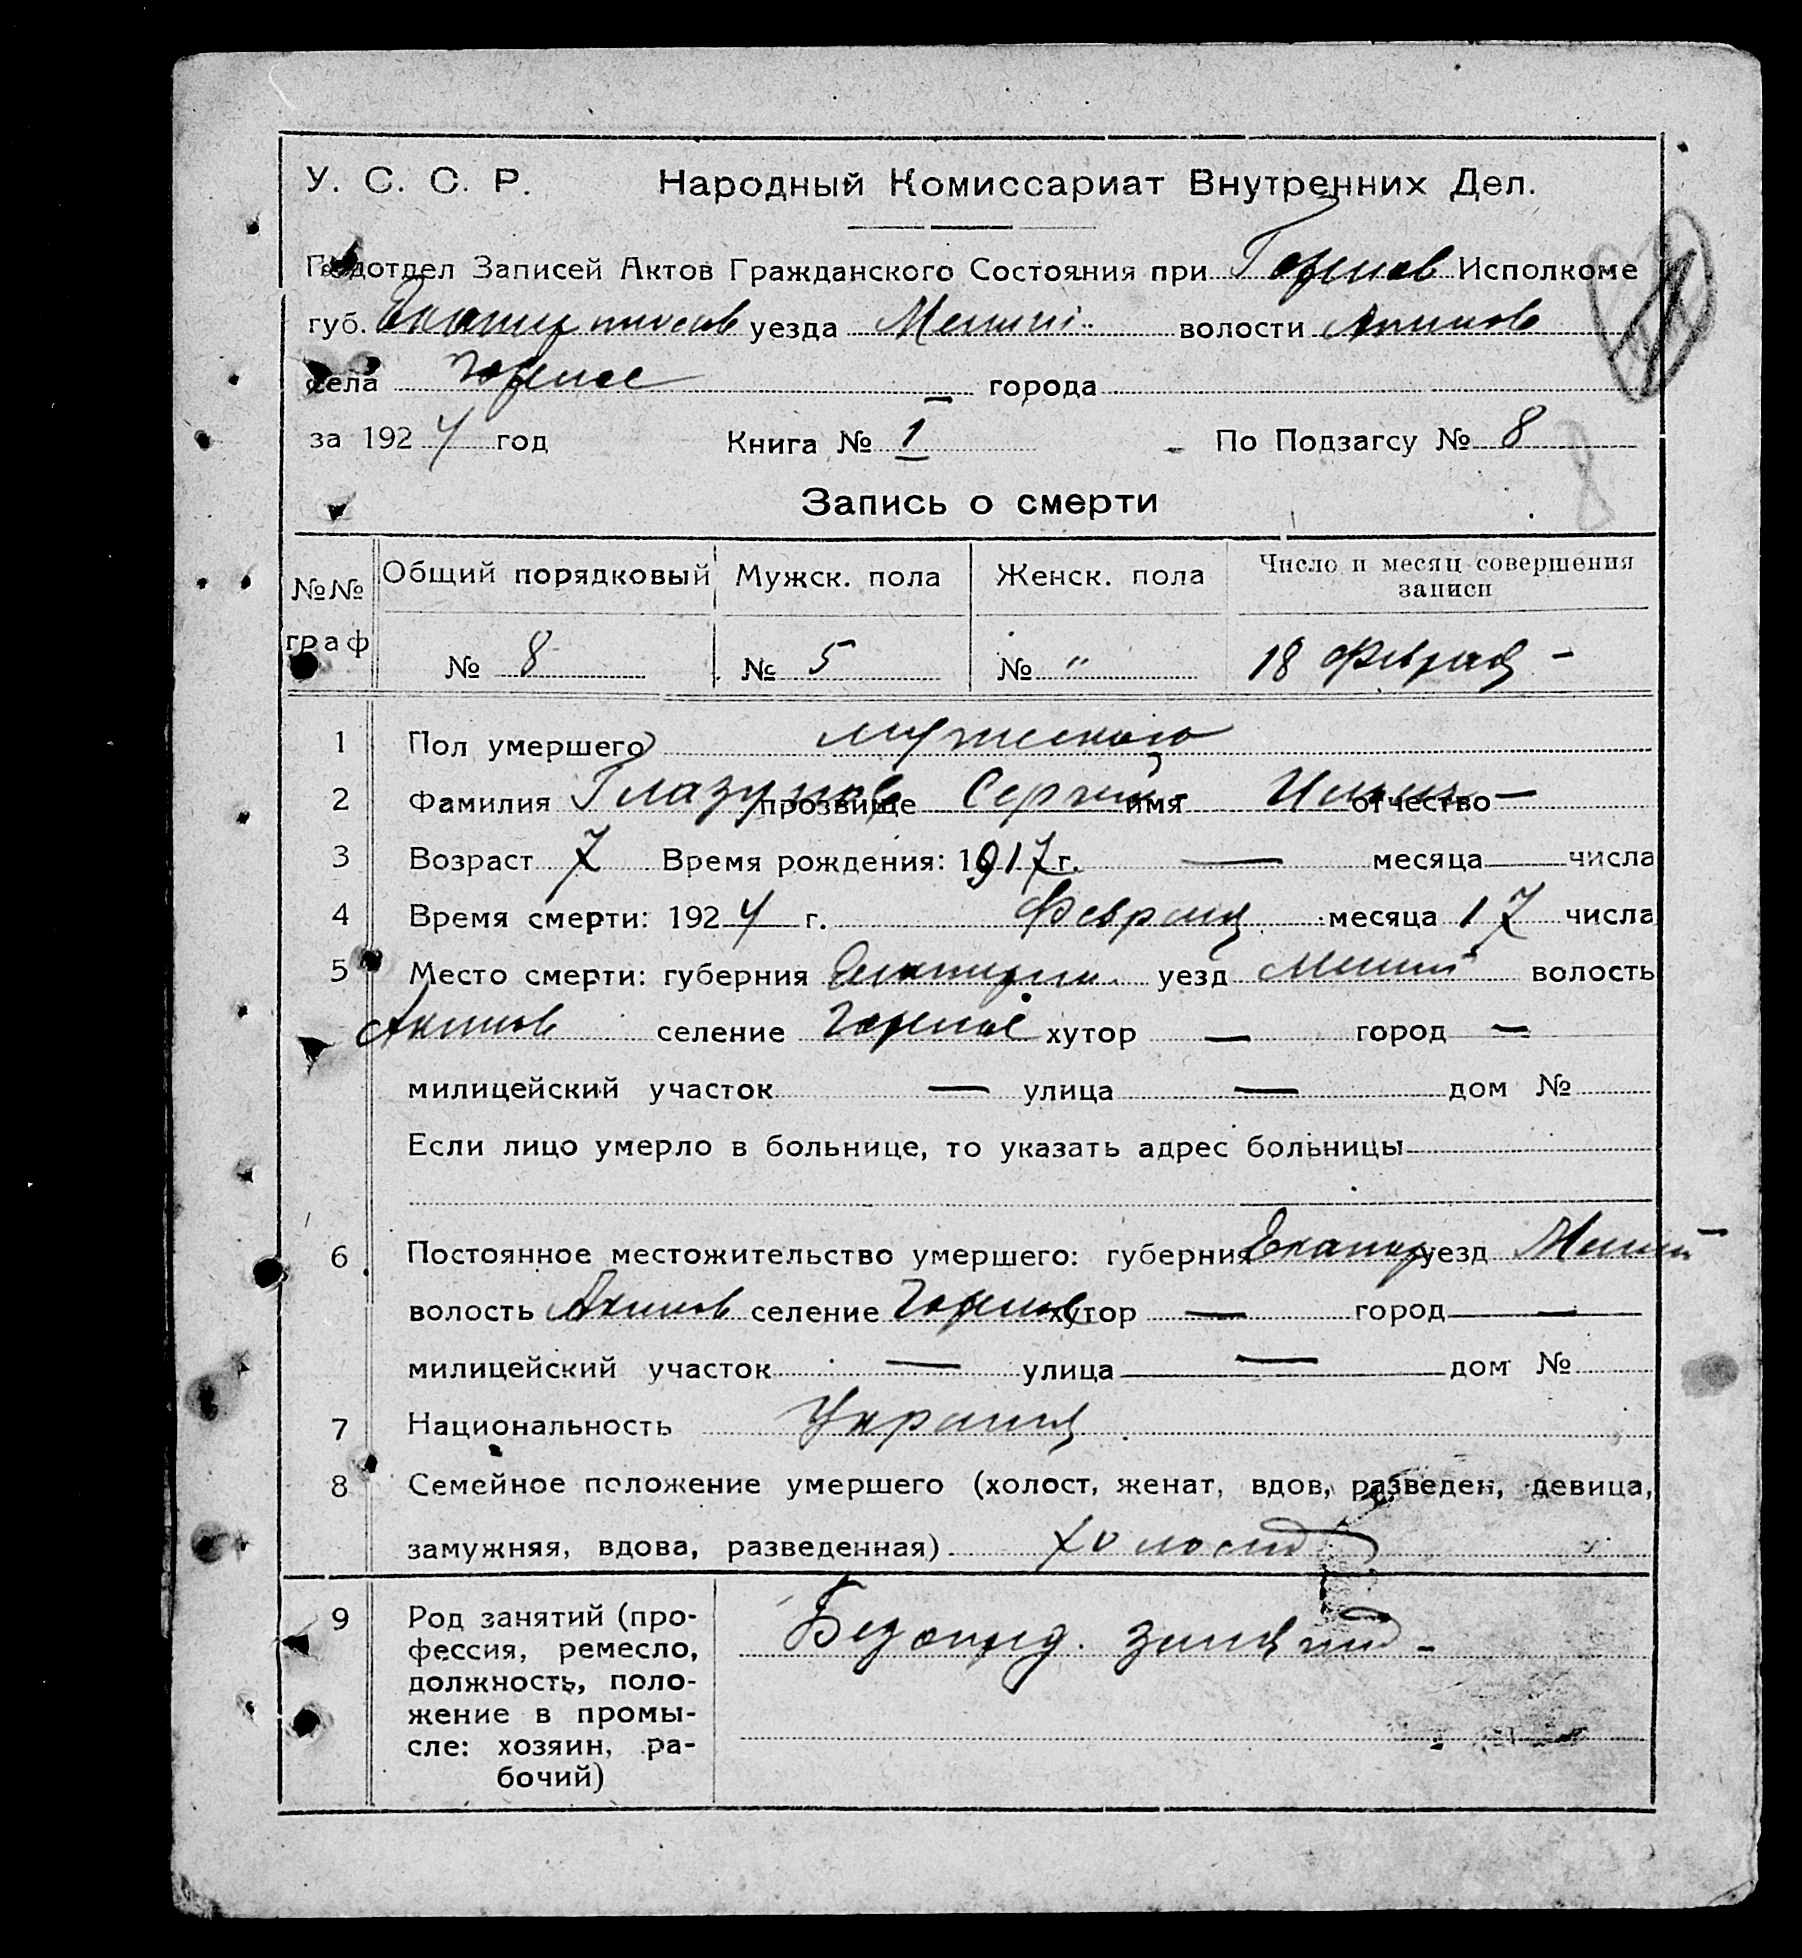 У. С. С. Р. Народный Комиссариат Внутренних Дел.
Подотдел Записей Актов Гражданского Состояния при Исполкоме
губ. Екатеринослав уезда волости Акимов
села города
за 1924 год Книга № 1 По Подзагсу № 8
8
Запись о смерти
№№ граф Общий порядковый Мужск. пола Женск. пола Число и месяц совершения записи
№ 8 № 5 № " 18 Февраля –
1 Пол умершего мужского
2 Фамилия Глазунов прозвище Сергей имя Ильич отчество —
3 Возраст 7 Время рождения: 1917 г. — месяца числа
4 Время смерти: 1924 г. Февраля месяца 17 числа
5 Место смерти: губерния Екатерин. уезд волость
Акимов селение хутор — город —
милицейский участок — улица — дом №
Если лицо умерло в больнице, то указать адрес больницы
6 Постоянное местожительство умершего: губерния Екатер уезд
волость Акимов селение хутор — город —
милицейский участок — улица — дом №
7 Национальность
8 Семейное положение умершего (холост, женат, вдов, разведен, девица,
замужняя, вдова, разведенная) холост
9 Род занятий (про-
фессия, ремесло,
должность, поло-
жение в промы-
сле: хозяин, ра-
бочий)